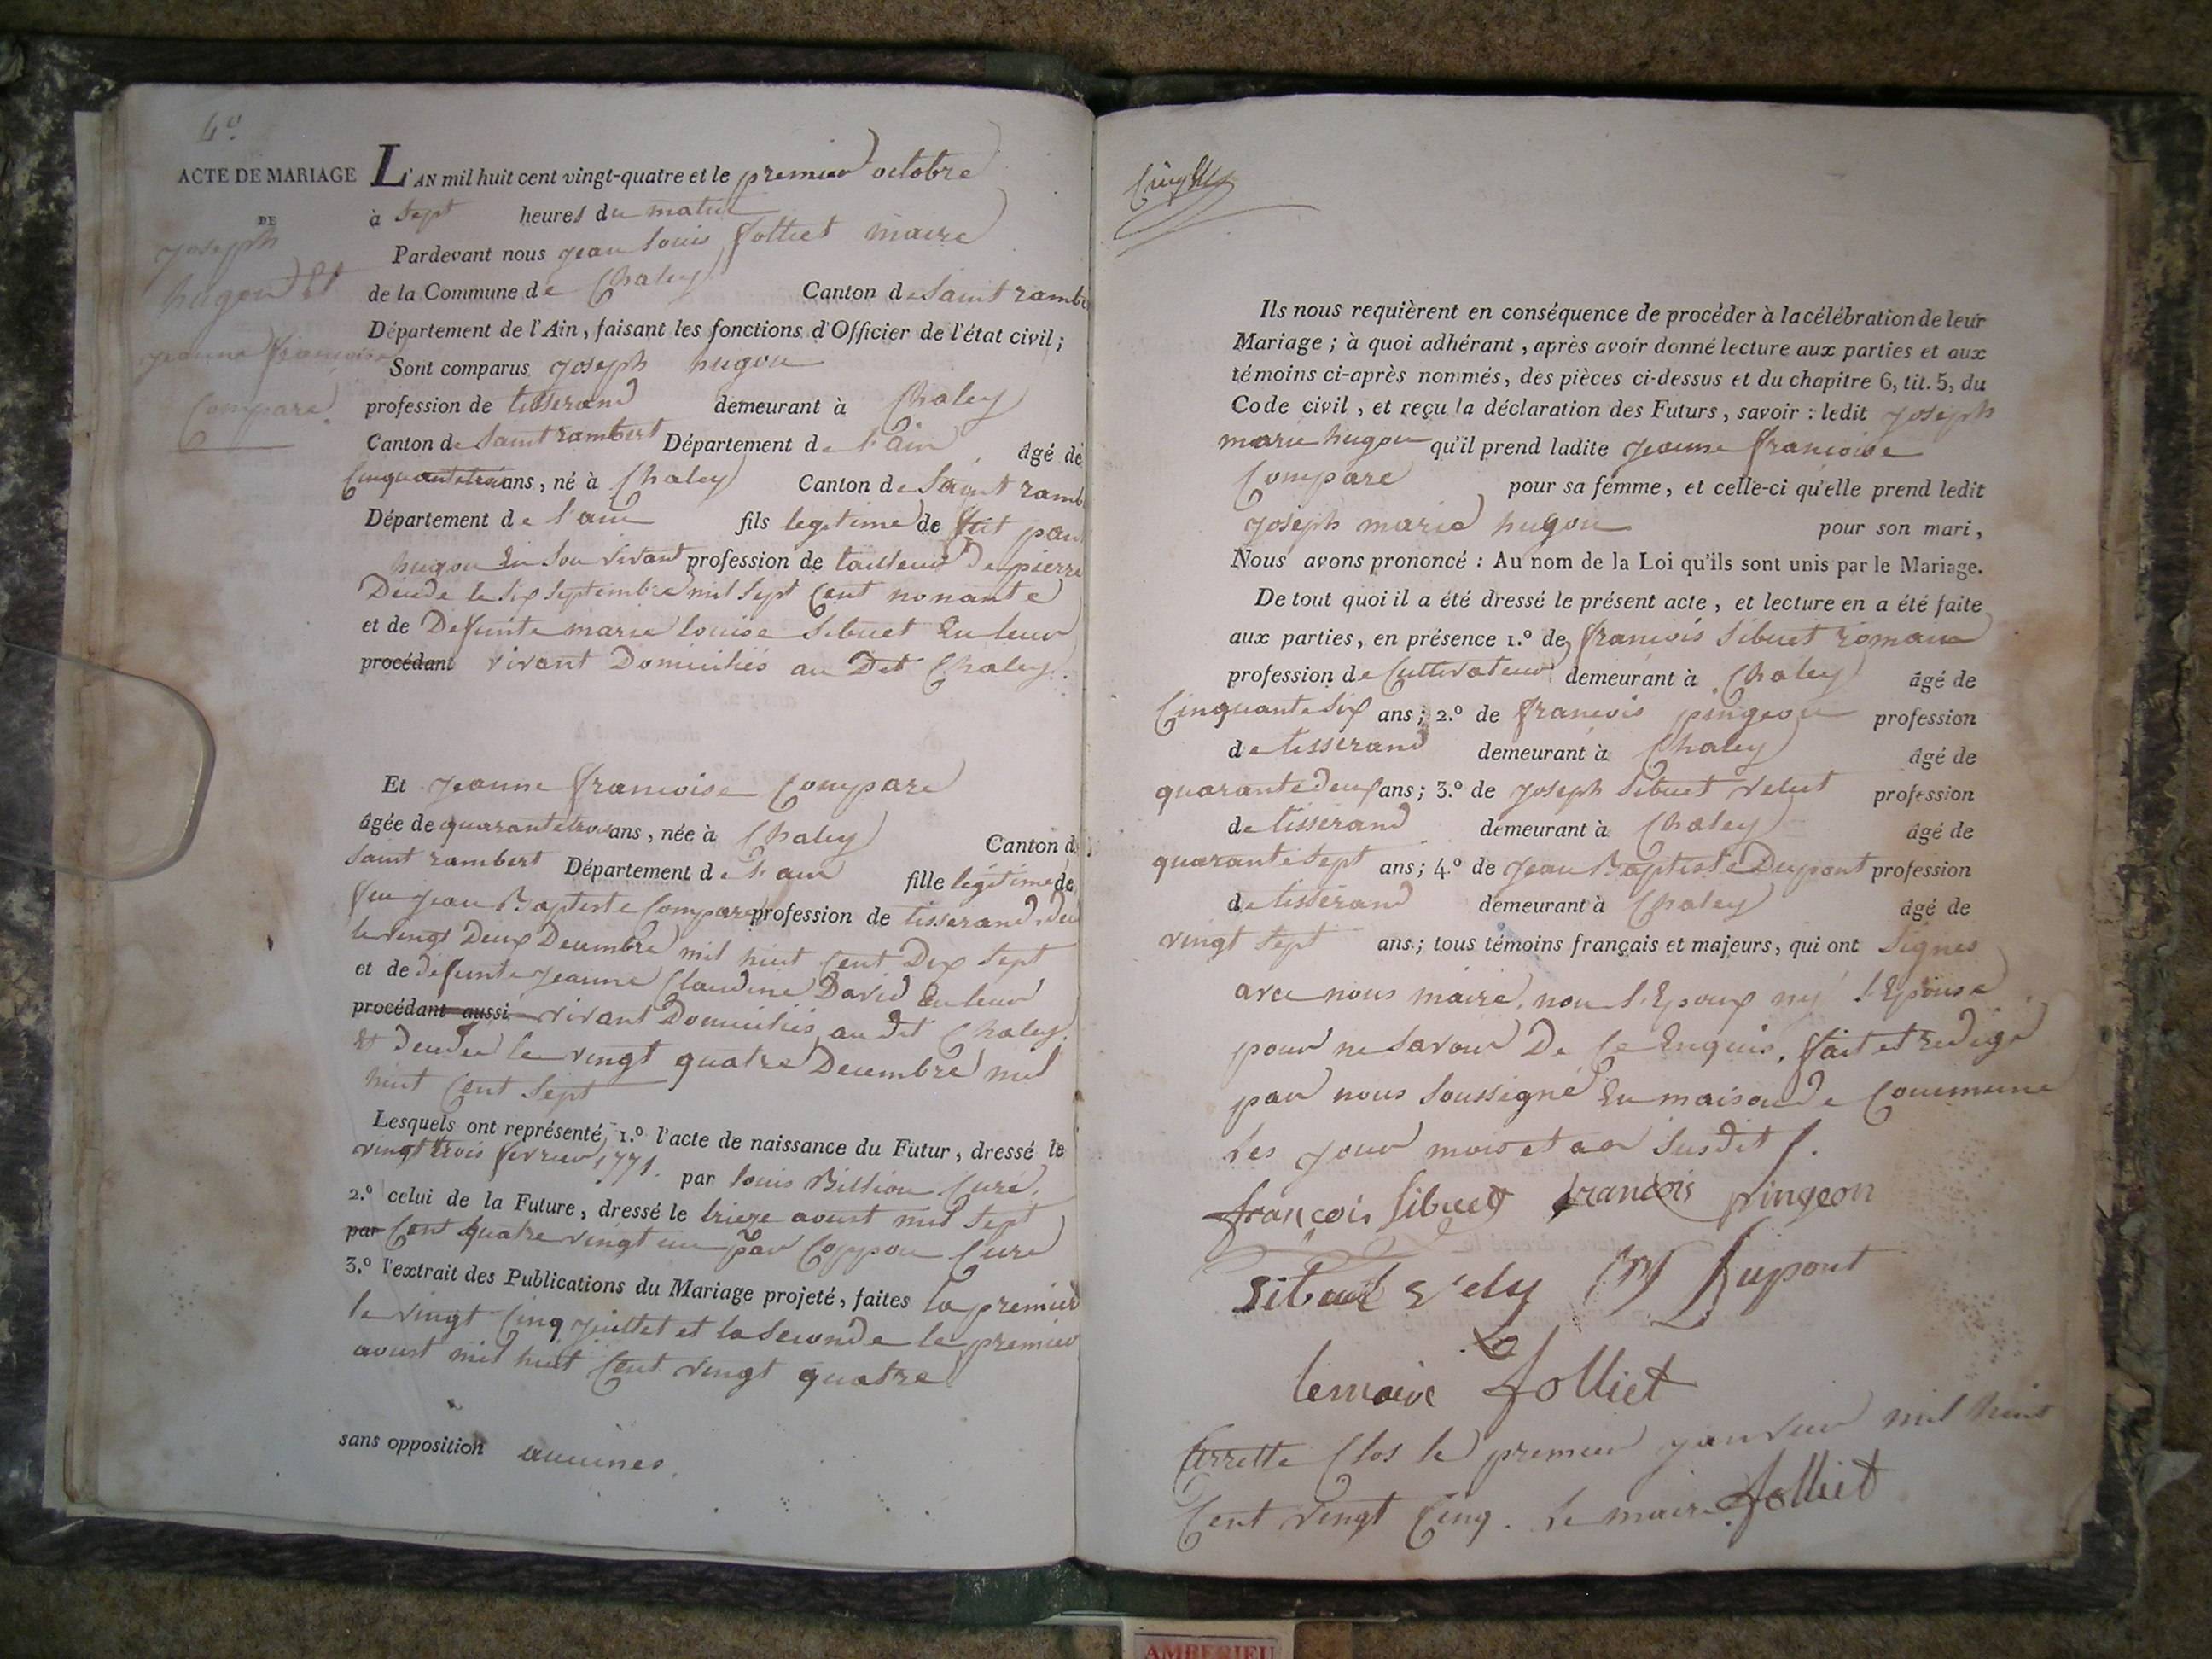 4º
ACTE DE MARIAGE
DE
Joseph
hugon Et
jeanne francoise
Compare
L'AN mil huit cent vingt-quatre et le premier octobre
à Sept heures du matin
Pardevant nous jean louis Jolliet maire
de la Commune de Chaley Canton de Saint ramb
Département de l'Ain, faisant les fonctions d'Officier de l'état civil;
Sont comparus joseph hugon
profession de tisserand demeurant à Chaley
Canton de Saint rambert Département de l'ain âgé de
Cinquantetrois ans, né à Chaley Canton de Saint ramb
Département de l'ain fils legetime de
hugon En Son vivant profession de tailleur de pierre
Décédé le Six Septembre mil Sept Cent nonante
et de Defunte marie louise Sibuet En leur
procédant vivant Domiciliés au Dit Chaley.
Et jeanne francoise Compare
âgée de quarantetrois ans, née à Chaley Canton de
Saint rambert Département de l'ain fille légitime de
feu jean Baptiste Compare profession de tisserand
le vingt Deux Decembre mil huit Cent Dix Sept
et de defunte jeanne Claudine David En leur
procédant aussi vivant Domiciliés au dit Chaley.
Et decedee le vingt quatre Decembre mil
huit Cent Sept
Lesquels ont représenté, 1.º l'acte de naissance du Futur, dressé le
vingt trois fevrier 1771. par louis Billion Curé.
2.º celui de la Future, dressé le treize aoust mil Sept
par Cent quatre vingt un par Coppon Curé
3.º l'extrait des Publications du Mariage projeté, faites la premier
le vingt Cinq juillet et la Seconde le premier
aoust mil huit Cent vingt quatre
sans opposition aucunes.
Ils nous requièrent en conséquence de procéder à la célébration de leur
Mariage; à quoi adhérant, après avoir donné lecture aux parties et aux
témoins ci-après nommés, des pièces ci-dessus et du chapitre 6, tit. 5, du
Code civil, et reçu la déclaration des Futurs, savoir: ledit joseph
marie hugon qu'il prend ladite jeanne francoise
Compare pour sa femme, et celle-ci qu'elle prend ledit
joseph marie hugon pour son mari,
Nous avons prononcé: Au nom de la Loi qu'ils sont unis par le Mariage.
De tout quoi il a été dressé le présent acte, et lecture en a été faite
aux parties, en présence 1.º de francois Sibuet romain
profession de Cultivateur demeurant à Chaley âgé de
Cinquante Six ans; 2.º de francois pingeon profession
de tisserand demeurant à Chaley âgé de
quarante deux ans; 3.º de joseph Sibuet velut profession
de tisserand demeurant à Chaley âgé de
quarante Sept ans; 4.º de jean Baptiste Dupont profession
de tisserand demeurant à Chaley âgé de
vingt Sept ans; tous témoins français et majeurs, qui ont Signes
avec nous maire, non l'Epoux ny l'Epouse
pour ne Savoir De Ce Enquis. fait et redigé
par nous Soussigné En maison de Commune
les jour mois et an Susdit
françois Sibuet francois pingeon
Sibuet Dupont
le maire Jolliet
arrette Clos le premier janvier mil huit
Cent vingt Cinq. le maire Jolliet
AMBERIEU